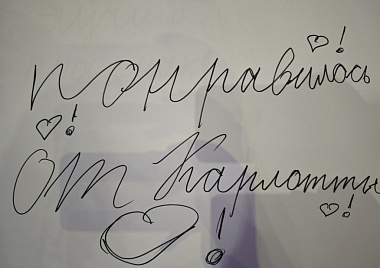 понравилось
♡!
♡!
От Карлотты
♡!
♡!